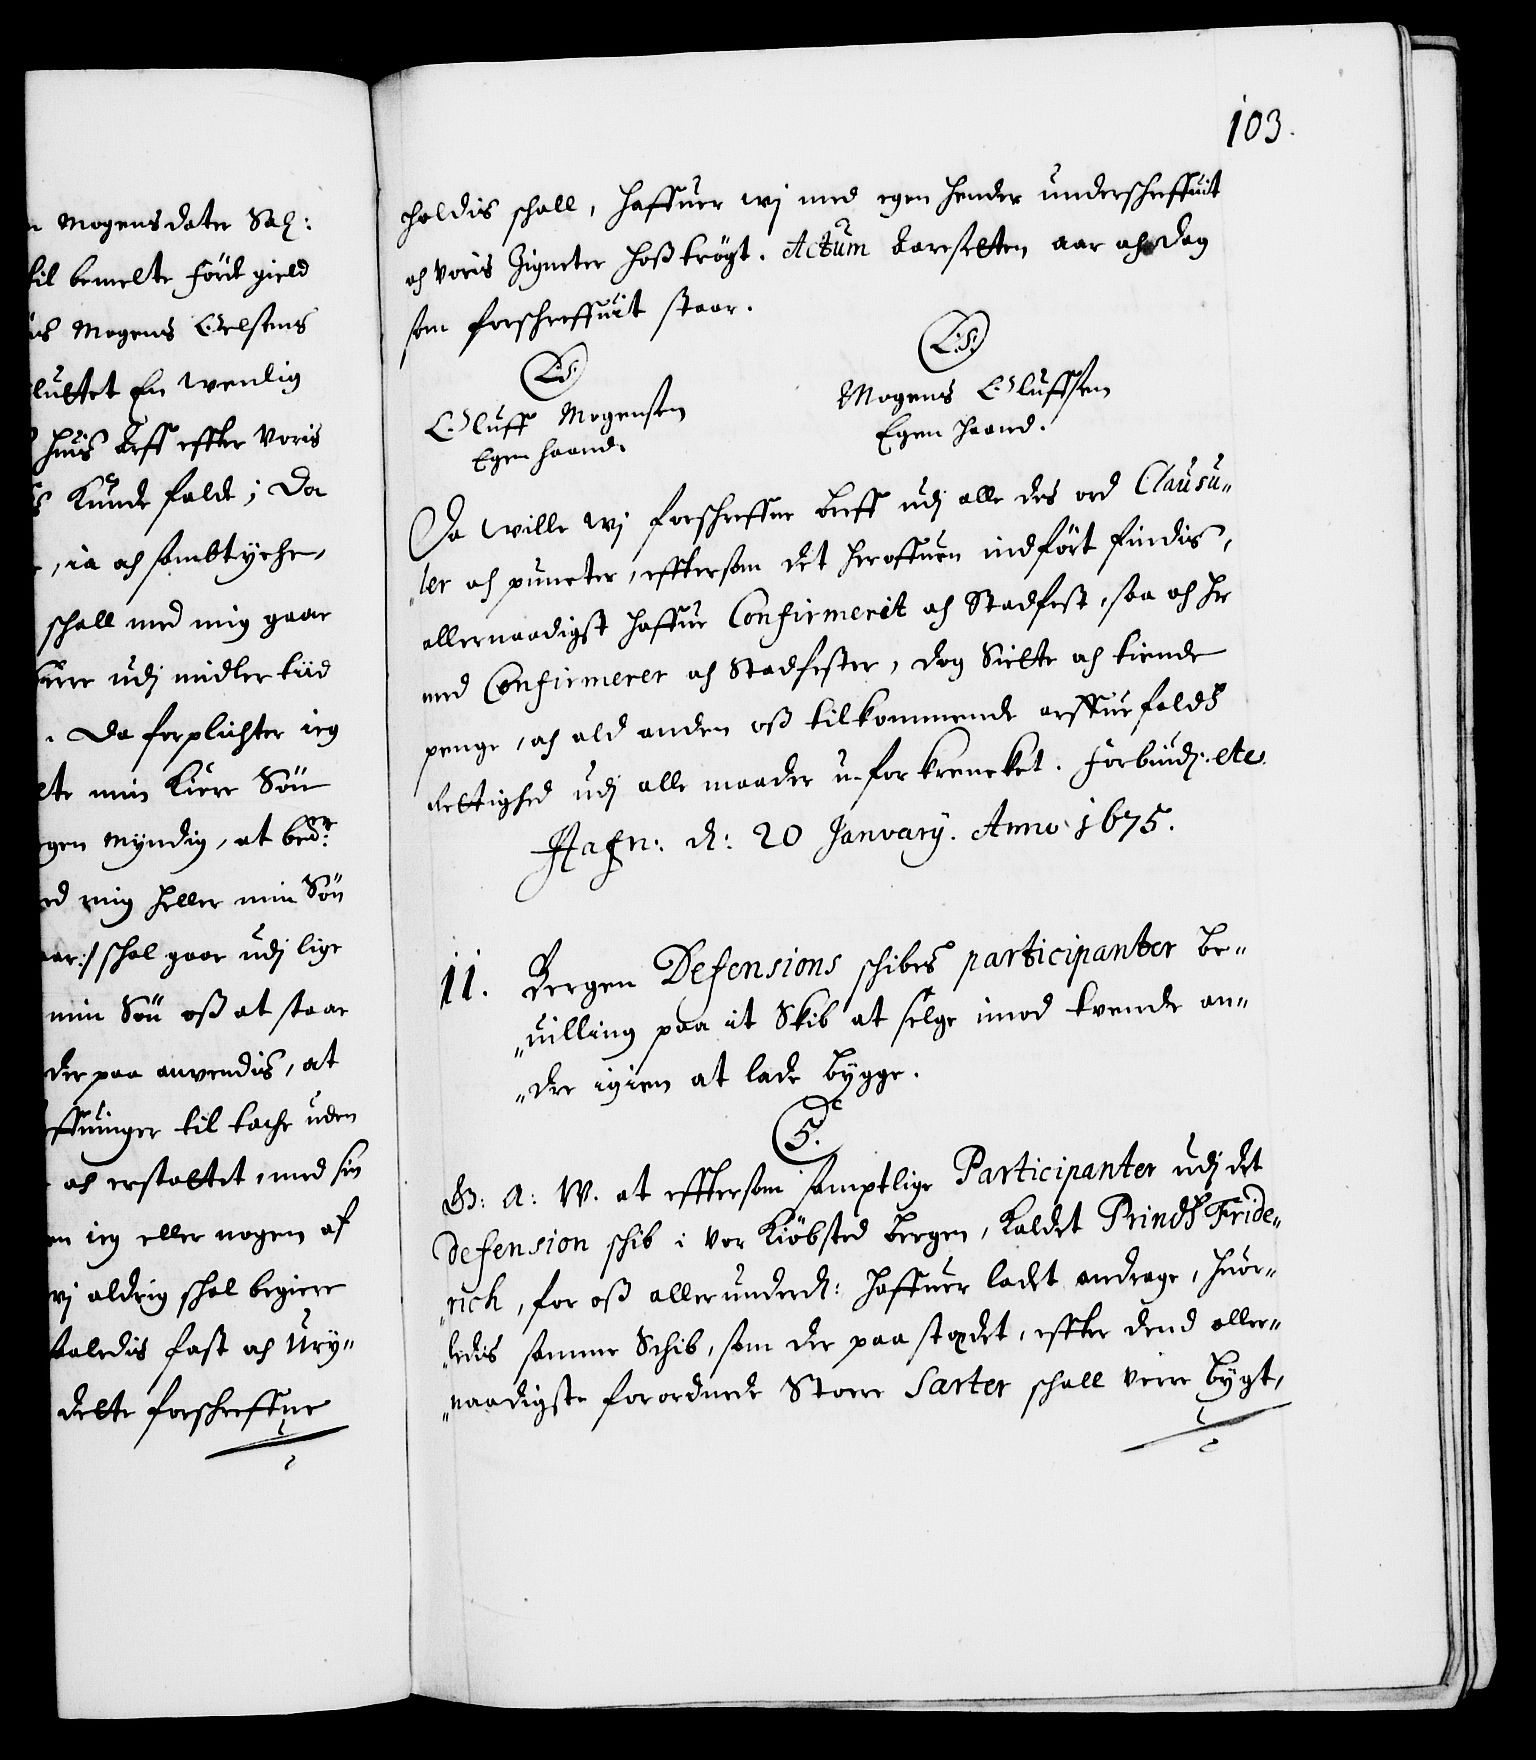 103.
n Mogensdater Sal:
til bemelte førde gield
Mogens Oelsens
sluttet En wenlig
huis breff effter Voris
Kunde falde; Da
, ia och sambtyche,
schall med mig gaar
være udj midler tiid
. Da forplichter ieg
min kiere Søn
egen Myndig, at bedr:
ed mig heller min Søn
aar:/ schal gaar udj lige
min Søn oss at staar
der paa anvendis, at
effninger til tache uden
och erstattet, med sin
en ieg eller nogen af
wj aldrig schal begiere
fast och Ury-
dette forschreffne
holdis schall, haffuer wj med egen hender underschreffuit
och voris Zigneter hoss trögt. Actum aar och dag
som forschreffuit staar.
L.S.
L.S.
Oluff Mogensen
Egen haand.
Mogens Oluffsen
Egen haand.
Da wille wj forschreffne breff udj alle des ord Clausu-
"ler och puncter, effttersom det her offuen indført findis,
allernaadigst haffue Confirmerit och Stadfest, saa och her
med Confirmerer och Stadfester, dog Siette och tiende
penge, och ald anden oss tilkommende arffuefalds
rettighed udj alle maader u-forkrencket. Forbiudj. etc.
Hafn: d: 20 January. Anno 1675.
11. Bergen Defensions schibes participanter be-
"uilling paa it Skib at selge imod tvende an-
"dre igien at lade bygge.
C 5.
G: A: W. at effttersom samptlige Participanter udj det
Defension schib i vor kiöbsted Bergen, kaldet Prinds Fride-
"rich, for oss allerunderd: haffuer ladet andrage, huor-
"ledis samme Schib, som der paa stædet, effter dend aller-
"naadigste forordnede Store Sarter schall veire bygt,